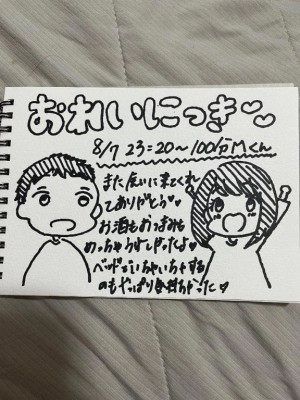 おれいにっき〜♡
8/7 23:20〜100分 Mくん
また会いに来てくれ
てありがとう♡
お酒もおつまみも
めっちゃうれしかったよ♡
ベッドでいちゃいちゃする
のもやっぱり